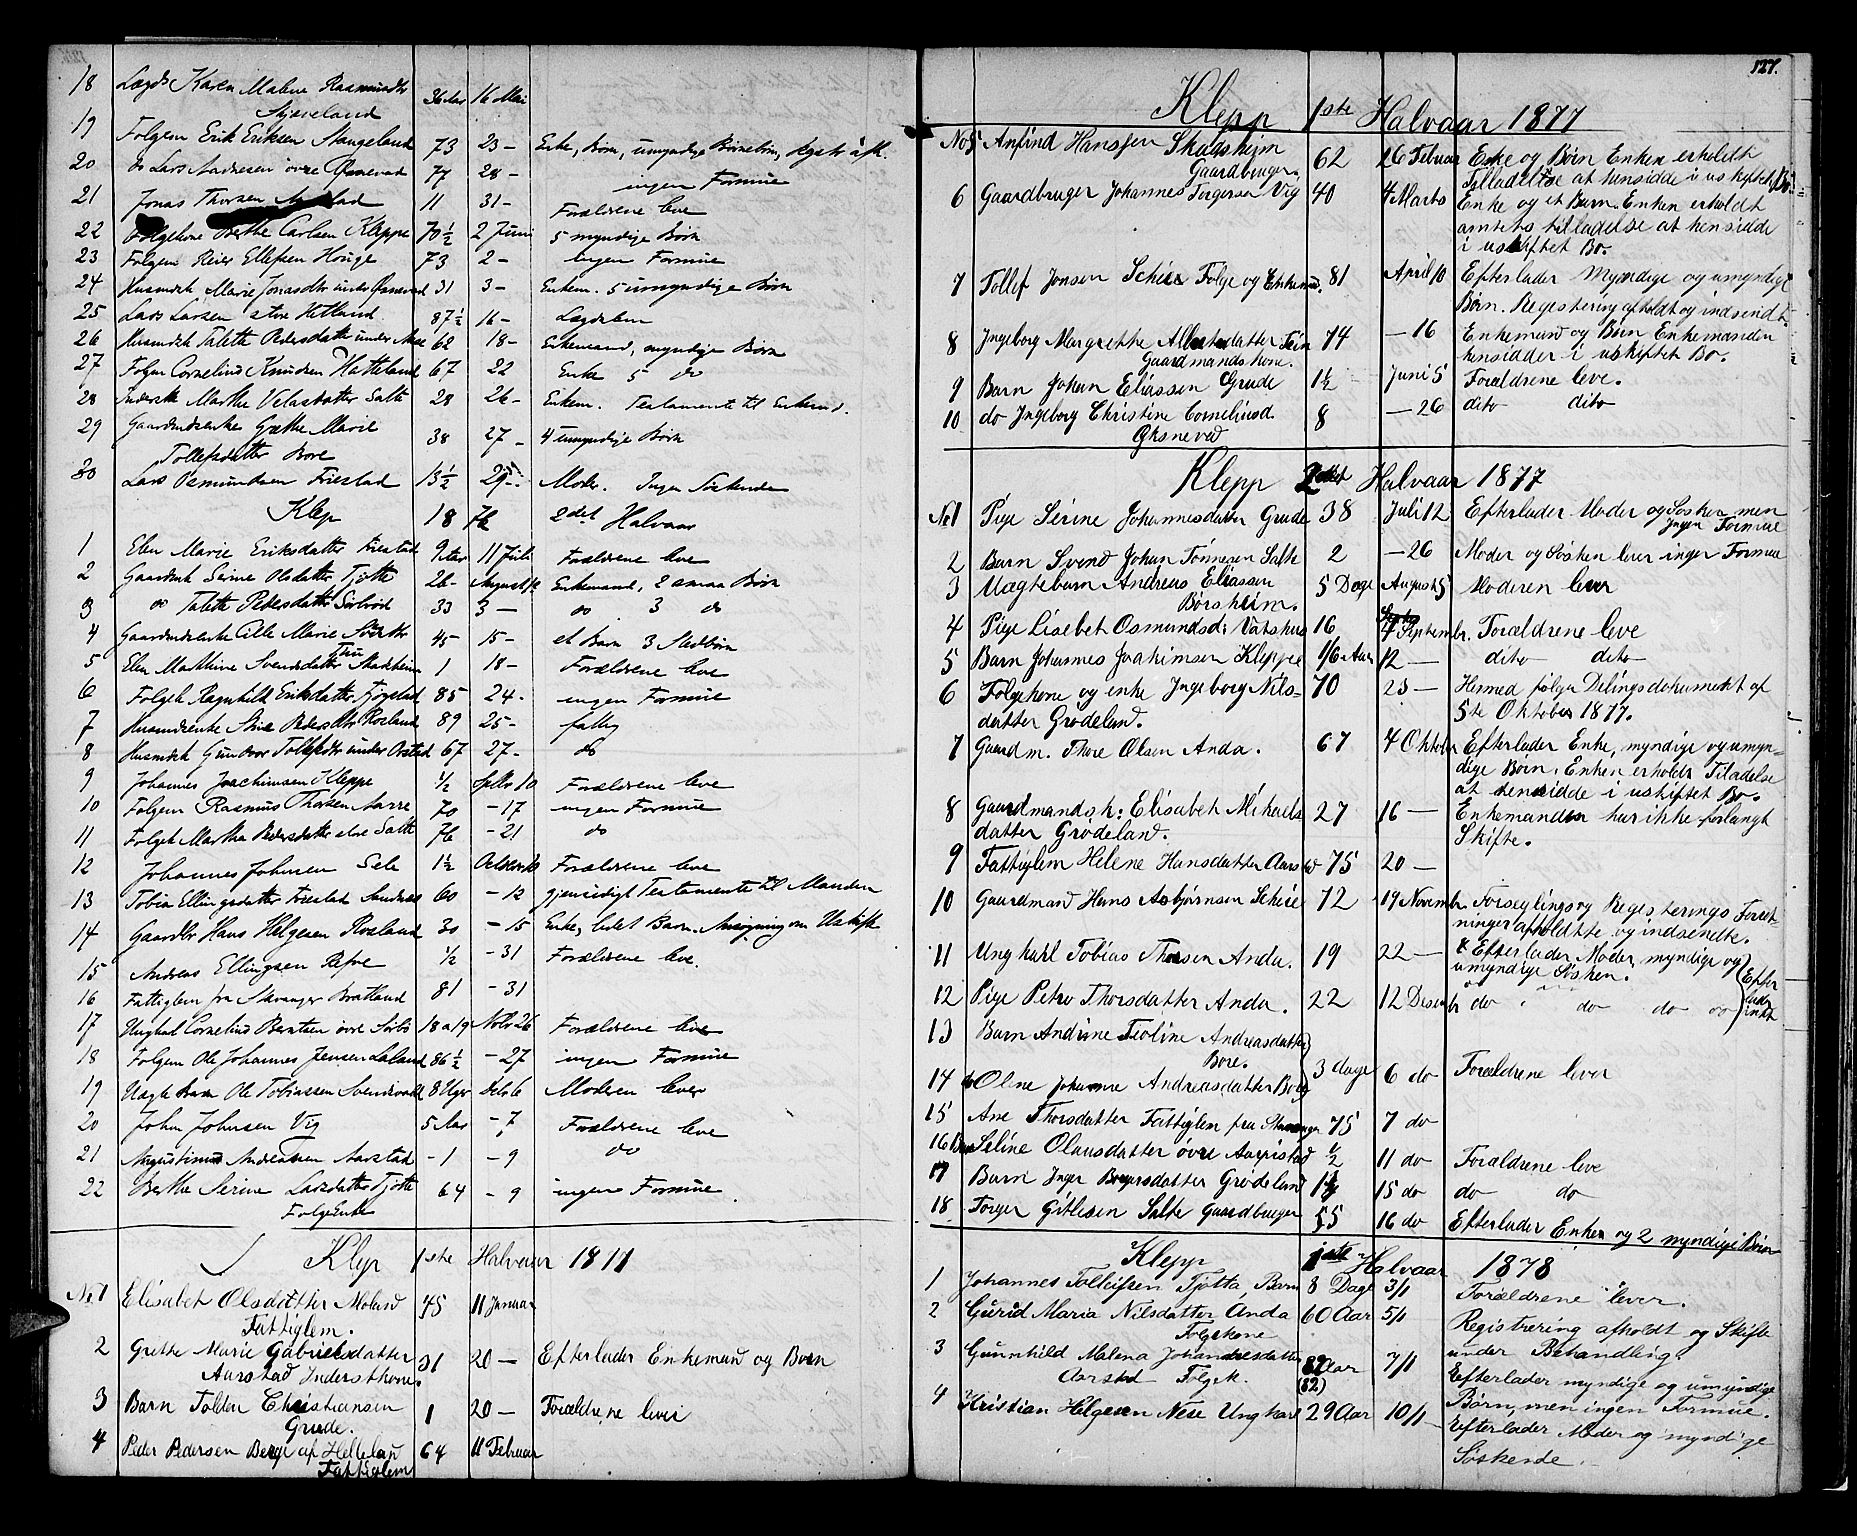 18 Lægds Karen Malene Rasmusdtr 36 Aar 16 Mai
Skjeveland
19 Folgem Erik Eriksen Stangeland 73 23 - Enke, Børn, umyndige Børnebørn,
20 do Lars Andresen øvre Øxnevad 77 28 - ingen Formue
21 Jonas Thorsen 11 31 - Forældrene leve
22 Folgekone Berthe Carlsen Kleppe 70 1/2 2 Juni 5 myndige Børn
23 Folgem Reier Ellefsen Houge 73 2 - Ingen Formue
24 Husmdk Marie Jonasdtr under Øxnevad 31 3 - Enkem. 5 umyndige Børn
25 Lars Larsen store Hetland 87 1/2 16 - Lægdslem
26 Husmdk Talette Pedersdatter under 62 18 - Enkemand, myndige Børn
27 Folgem Cornelius Knudsen Hatteland 67 22 Enke 5 do
28 Inderstk Marthe Salte 28 26 - Enkem. Testamente til Enkemd.
29 Gaardmdsenke Grethe Marie 38 27 - 4 umyndige Børn
Tollefsdatter Bore
30 Lars Osmundsen Friestad 13 1/2 29 - Moder. Ingen Søskende
Klep 1876 2det Halvaar
1 Elen Marie Eriksdatter Friestad 9 Aar 11 Juli Forældrene leve
2 Gaardmk Serine Olsdatter Tjøtte 26 - August Enkemand, 2 smaa Børn
3 do Talette Pedersdatter 33 3 - do 3 do
4 Gaardmdsenke Cille Marie 45 - 15 - et Barn 3 Stedbørn
5 Elen Marthine Svendsdatter Thu 1 18 - Forældrene leve
6 Folgek Ragnhild Eriksdatter Tjøgstad 85 24 - ingen Formue
7 Husmdsenke Stine Pedersdtr Rosland 89 25 - fattig
8 Husmdsk Gundvor Tollefsdtr under Orstad 67 27 - do
9 Johannes Joachimsen Kleppe 1/2 Septbr 10 Forældrene leve
10 Folgem Rasmus Thorsen Aarre 70 - 17 ingen Formue
11 Folgek Martha Pedersdatter Salte 76 - 21 do
12 Johannes Johnsen Sele 1 1/2 Octobr Forældrene leve
13 Tobia Ellingsdatter Friestad 60 - 12 gjensidigt Testamente til Manden
14 Gaardbr Hans Helgesen Rosland 30 - 15 Enke, lidet Barn. Ansøgning om Uskifte
15 Andreas Ellingsen Refve 1/2 - 31 Forældrene leve.
16 Fattiglem fra Stavanger Bratland 81 - 31
17 Ungkal Cornelius Berntsen øvre 18 a 19 Novbr 26 Forældrene leve
18 Folgem Ole Johannes Jensen Laland 86 1/2 - 27 ingen Formue
19 Uægte Barn Ole Tobiassen 8 Uger Debr 6 Moderen lever
20 John Johnsen Vig 5 Aar - 7 Forældrene leve
21 Augustinus Andreasen Aarstad - 1 - 9 do
22 Berthe Serine Larsdatter Tjøtte 64 - 9 ingen Formue
FolgeEnke
Klep 1ste Halvaar 1877
No 1 Elisabet Olsdatter Moland 75 11 Januar
Fattiglem.
2 Grethe Marie Gabrielsdatter 31 20 - Efterlader Enkemand og Børn
Aarstad Inderstkone.
3 Barn Tolder Christiansen 1 20 - Forældrene lever
Grude.
4 Peder Pedersen Berge af Helleland 64 11 Februar
Fattiglem
127.
Klepp 1ste Halvaar 1877
No 5 Anfind Hanssen Skadsheim 62 26 Februar Enke og Børn Enken erholdt
Gaardbruger. Tilladelse at hensidde i uskiftet Bo.
6 Gaardbruger Johannes Torgersen Vig 40 4 Marts Enke og et Barn. Enken erholdt
amtets tilladelse at hensidde
i uskiftet Bo.
7 Tollef Jonsen Schies Folge og Enkemd. 81 April 10 Efterlader Myndige og umyndige
Børn. Registering afholdt og indsendt.
8 Ingeborg Margrethe datter 74 - 16 Enkemand og Børn Enkemanden
Gaardmandskone. hensidder i uskiftet Bo.
9 Barn Johan Eliassen Grude 1 1/2 Juni 5 Forældrene leve.
10 do Ingeborg Christine Corneliusd 8 - 26 dito dito
Øksnevad
Klepp 2det Halvaar 1877
No 1 Pige Serine Johannesdatter Grude 38 Juli 12 Efterlader Moder og Søsken men
Ingen Formue
2 Barn Svend Johan Tønnesen Salte 2 - 26 Moder og Søsken lever ingen Formue
3 Uægtebarn Andreas Eliassen 5 Dage August 5 Moderen lever
Børsheim.
4 Pige Lisebet Osmundsd: Vatshus 16 4 Septembr. Forældrene leve
5 Barn Johannes Joakimsen Kleppe 1/6 Aar 12 - dito dito
6 Folgekone og enke Ingeborg Nils- 70 23 - Hermed følger Delingsdokumentet af
datter Grødeland. 5te Oktober 1877.
7 Gaardm. Thore Olsen Anda. 67 4 Oktober Efterlader Enke, myndige og umyn-
dige Børn. Enken erholdt Tiladelse
at hensidde i uskiftet Bo.
8 Gaardmandsk: Elisabet Mikaels 27 16 - Enkemanden har ikke forlangt
datter Grødeland. Skifte.
9 Fattiglem Helene Hansdatter Aarstad 75 20 -
10 Gaardmand Hans Asbjørnsen Schiee 72 19 Novembr. Forseglings og Registerings Forret-
ninger afholdte og indsendte.
11 Ung karl Tobias Thorsen Anda. 19 22 - Efterlader Moder, myndige og
umyndige Søsken.
12 Pige Petro Thorsdatter Anda. 22 12 Desembr do do do do
Efter
lader
intet
13 Barn Andrine Teoline Andreasdatter
Bore. 3 dage 6 do Forældrene lever
14 do Oline Johanne Andreasdatter Bore
15 Ane Thorsdatter Fattiglem fra Stavanger 75 7 do
16 Barn Seline Olausdatter øvre 1/2 11 do Forældrene leve
17 Barn Inger datter Grødeland 1 1/2 15 do do do
18 Torger Gitlesen Salte Gaardbruger 55 16 do Efterlader Enken og 2 myndige Børn
Klepp 1ste Halvaar 1878
1 Johannes Tollefsen Tjøtta, Barn 8 Dage 3/1 Forældrene lever.
2 Gurid Maria Nilsdatter Anda 60 Aar 5/1 Registrering afholdt og Skifte
Folgekone under Behandling.
3 Gunnhild Malena Johannesdatter 82 Aar 7/1 Efterlader myndige og umyndige
Aarstad Folgek. (82) Børn, men ingen Formue.
4 Kristian Helgesen Nese Ungkarl 29 Aar 10/1 - Efterlader Moder og myndige
Søskende.